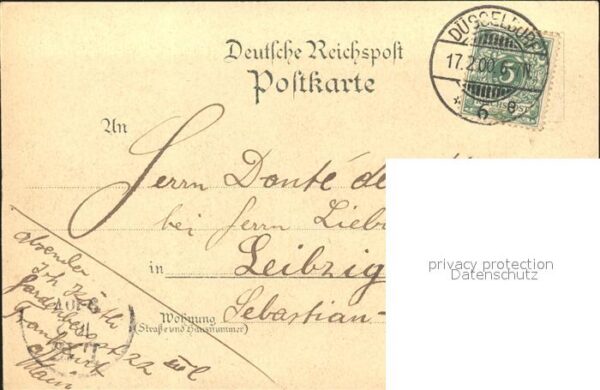 Deutsche Reichspost
Postkarte
DÜSSELDORF
17.2.00. 5-
6 e
5
An
Herrn Donté de
bei Herrn Lieb
in Leibzig
Wohnung Sebastian-
(Straße und Hausnummer)
absender
Joh
22 III
Frankfurt
Main
privacy protection
Datenschutz